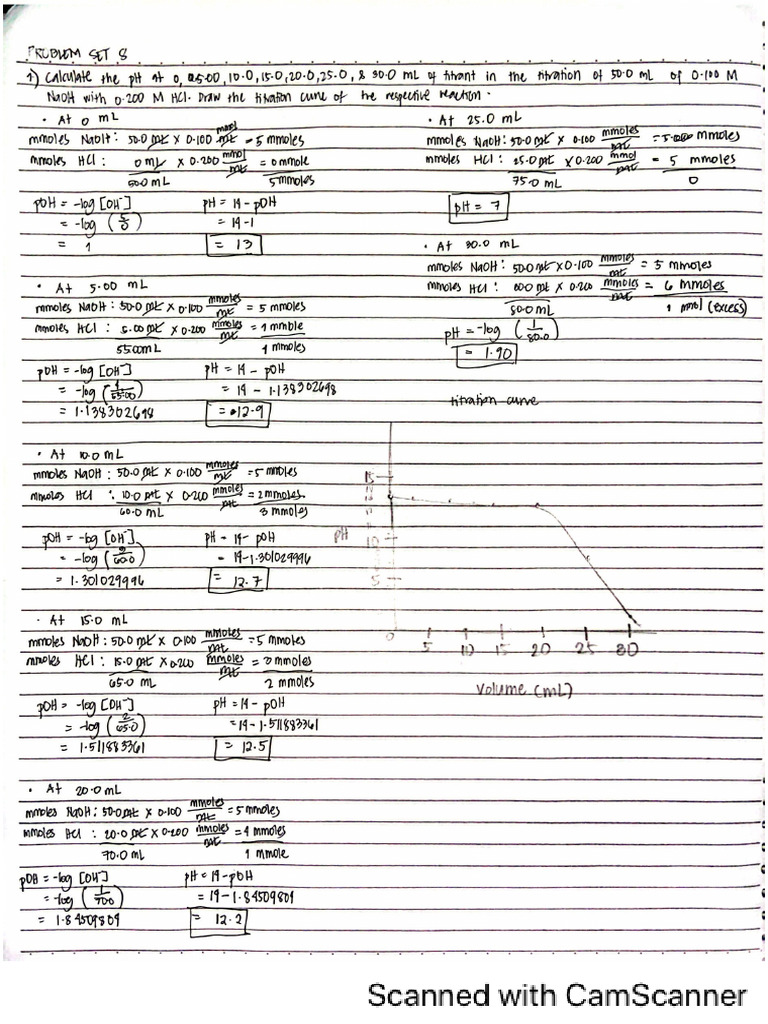 PROBLEM SET 8
1) Calculate the pH at 0, 5.00, 10.0, 15.0, 20.0, 25.0, & 30.0 mL of titrant in the titration of 50.0 mL of 0.100 M
NaOH with 0.200 M HCl. Draw the titration curve of the respective reaction.
• At 0 mL
mmoles NaOH: 50.0 mL x 0.100 mmol/mL = 5 mmoles
mmoles HCl: 0 mL x 0.200 mmol/mL = 0 mmole
50.0 mL 5 mmoles
pOH = -log [OH⁻] pH = 14 - pOH
= -log (5/0) = 14 - 1
= 1 = 13
• At 5.00 mL
mmoles NaOH: 50.0 mL x 0.100 mmoles/mL = 5 mmoles
mmoles HCl: 5.00 mL x 0.200 mmoles/mL = 1 mmole
55.00mL 4 mmoles
pOH = -log [OH⁻] pH = 14 - pOH
= -log (4/55.00) = 14 - 1.138302698
= 1.138302698 = 12.9
• At 10.0 mL
mmoles NaOH: 50.0 mL x 0.100 mmoles/mL = 5 mmoles
mmoles HCl: 10.0 mL x 0.200 mmoles/mL = 2 mmoles
60.0 mL 3 mmoles
pOH = -log [OH⁻] pH = 14 - pOH
= -log (3/60.0) = 14 - 1.301029996
= 1.301029996 = 12.7
• At 15.0 mL
mmoles NaOH: 50.0 mL x 0.100 mmoles/mL = 5 mmoles
mmoles HCl: 15.0 mL x 0.200 mmoles/mL = 3 mmoles
65.0 mL 2 mmoles
pOH = -log [OH⁻] pH = 14 - pOH
= -log (2/65.0) = 14 - 1.511883361
= 1.511883361 = 12.5
• At 20.0 mL
mmoles NaOH: 50.0 mL x 0.100 mmoles/mL = 5 mmoles
mmoles HCl: 20.0 mL x 0.200 mmoles/mL = 4 mmoles
70.0 mL 1 mmole
pOH = -log [OH⁻] pH = 14 - pOH
= -log (1/70.0) = 14 - 1.84509804
= 1.84509804 = 12.2
• At 25.0 mL
mmoles NaOH: 50.0 mL x 0.100 mmoles/mL = 5 mmoles
mmoles HCl: 25.0 mL x 0.200 mmol/mL = 5 mmoles
75.0 mL 0
pH = 7
• At 30.0 mL
mmoles NaOH: 50.0 mL x 0.100 mmoles/mL = 5 mmoles
mmoles HCl: 30.0 mL x 0.200 mmoles/mL = 6 mmoles
80.0 mL 1 mmol (excess)
pH = -log (1/80.0)
= 1.90
titration curve
15
pH 10
5
0 5 10 15 20 25 30
Volume (mL)
Scanned with CamScanner